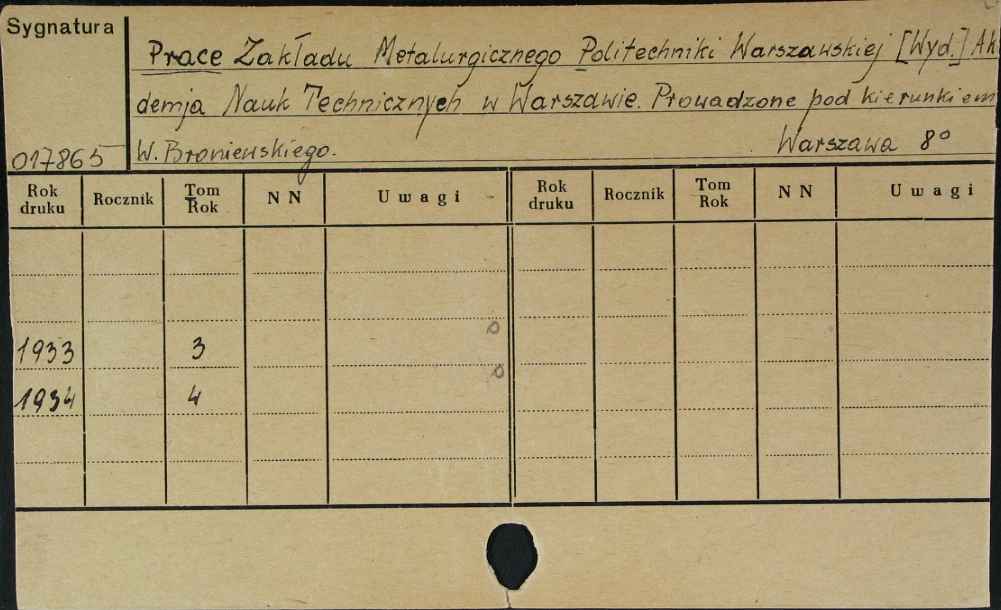 Sygnatura
Prace Zakładu Metalurgicznego Politechniki Warszawskiej [Wyd.] Aka
demja Nauk Technicznych w Warszawie. Prowadzone pod kierunkiem
017865 W. Broniewskiego. Warszawa 8°
Rok druku Rocznik Tom Rok N N Uwagi Rok druku Rocznik Tom Rok N N Uwagi
1933 3
1934 4